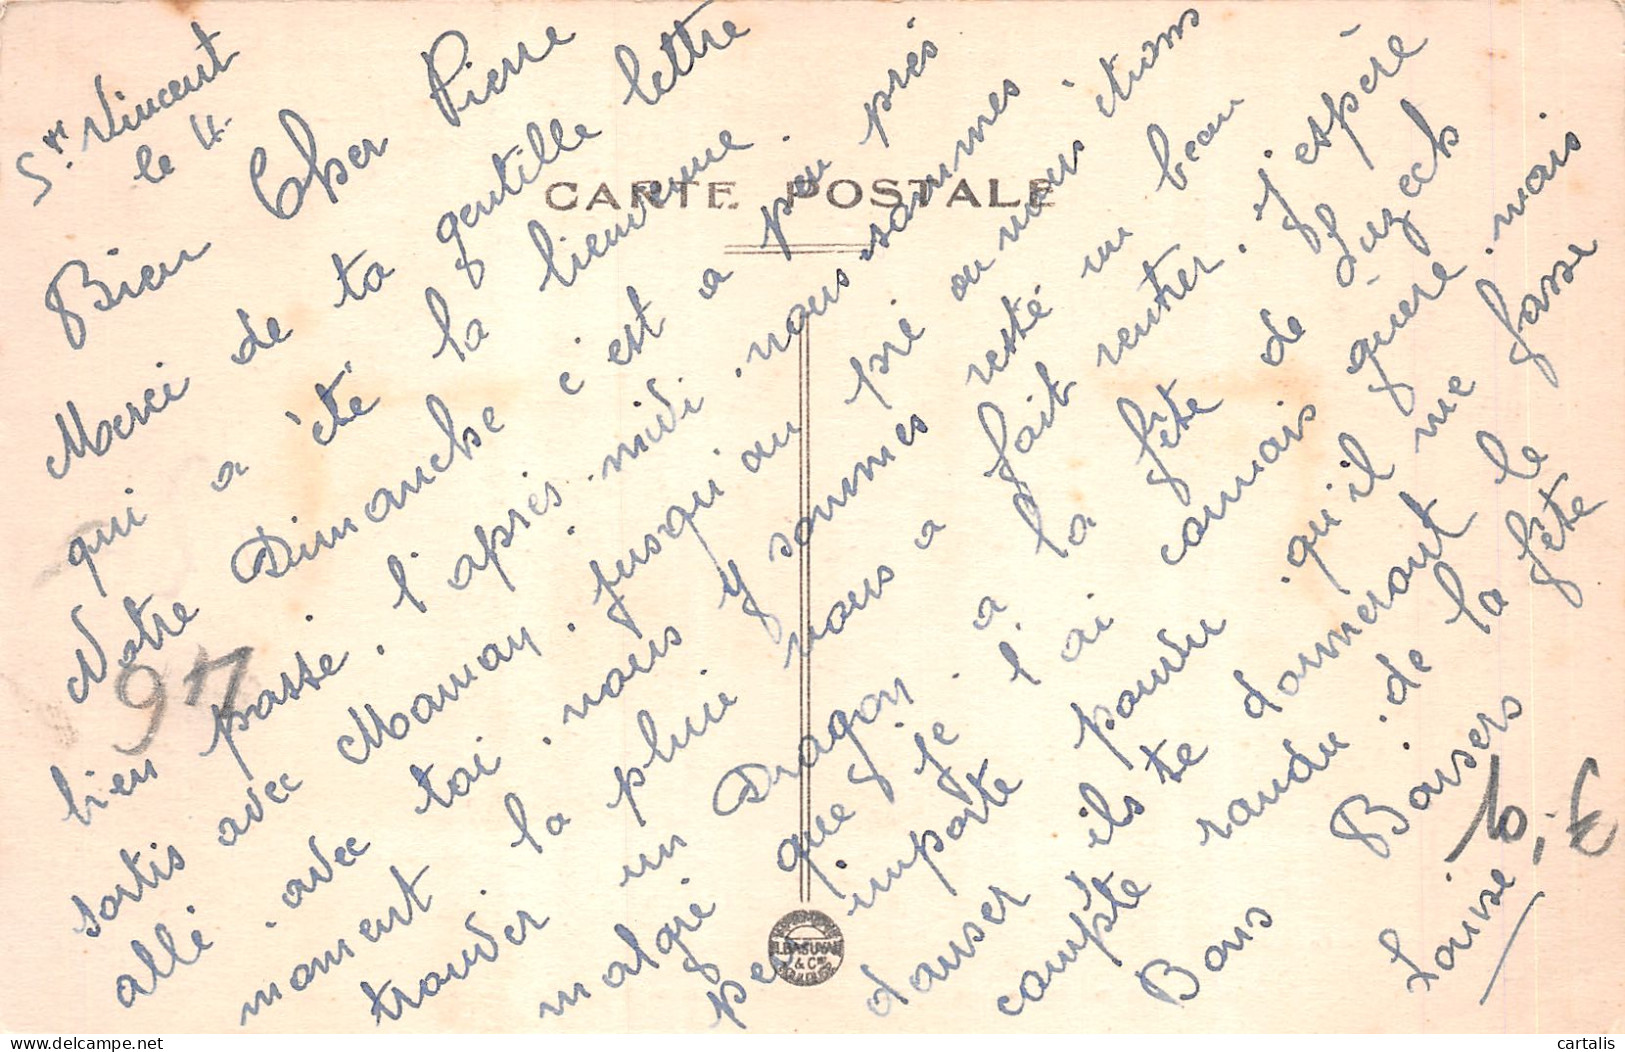 St Vincent
le 4
Bien Cher Pierre
Merci de ta gentille lettre
qui a été la bienvenue.
Notre Dimanche c'est a peu près
bien passé. l'après-midi. nous sommes
sortis avec Maman. jusqu'au pré ou nous étions
allé. avec toi. nous y sommes resté un beau
moment la pluie nous a fait rentrer. J'espère
trouver un Dragon. a la fête de Luzech
malgré que je l'ai connais guère. mais
peu importe pourvu qu'il me fasse
danser ils te donneront le
compte randu. de la fête
Bons Baisers
Louise
CARTE POSTALE
L. BASUYAU & Cie
TOULOUSE
97
10,F
cartalis